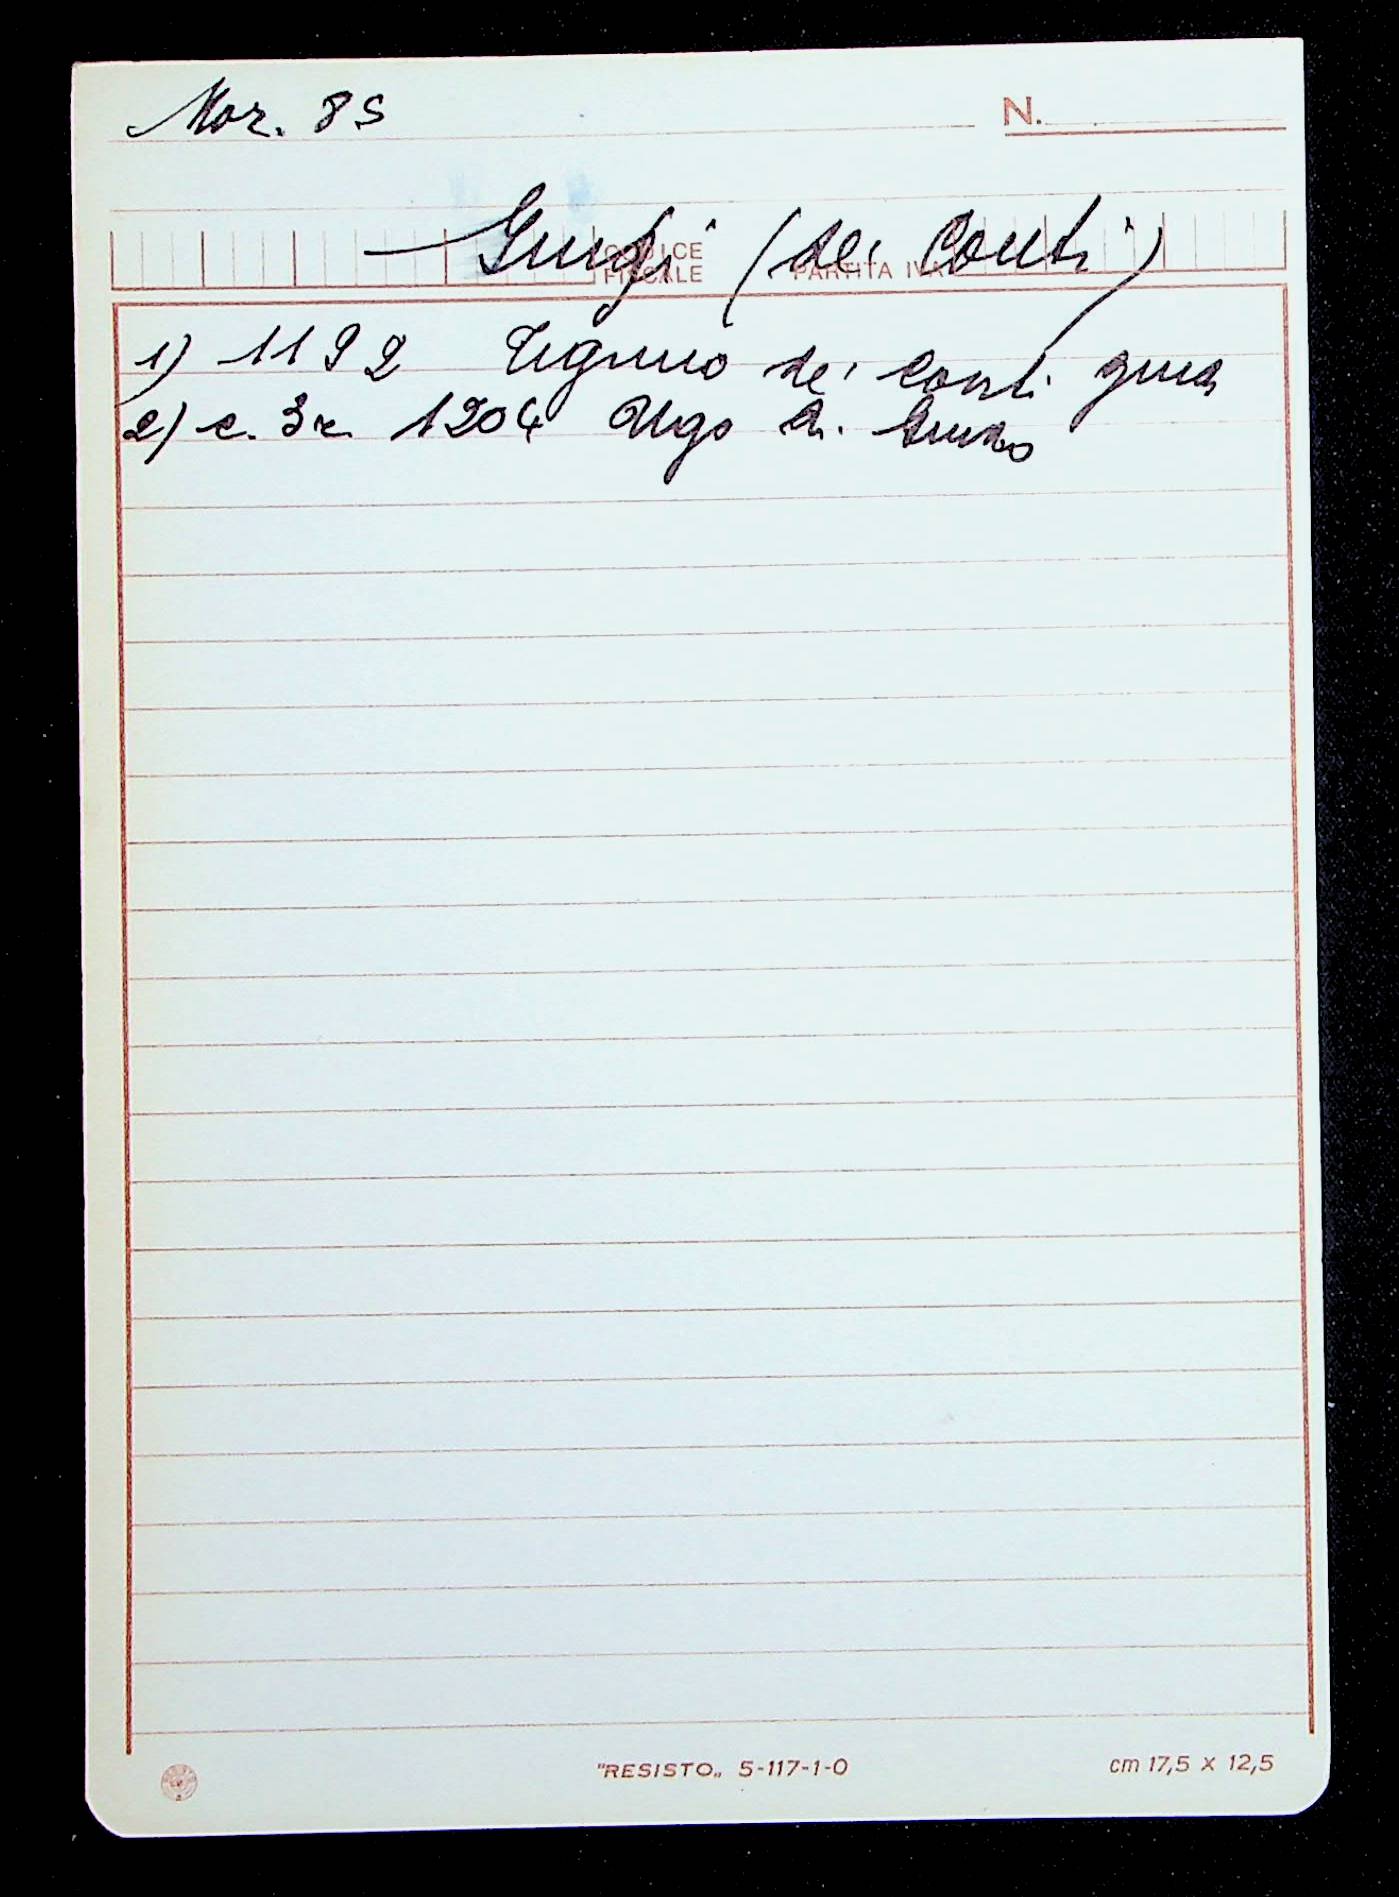 Mor. 85
N.
Guidi (dei Conti)
CODICE FISCALE PARTITA IVA
1) 1192 Tegrimo dei conti guidi
2) c. 3r. 1204 Ugo di Guido
"RESISTO" 5-117-1-0
cm 17,5 x 12,5